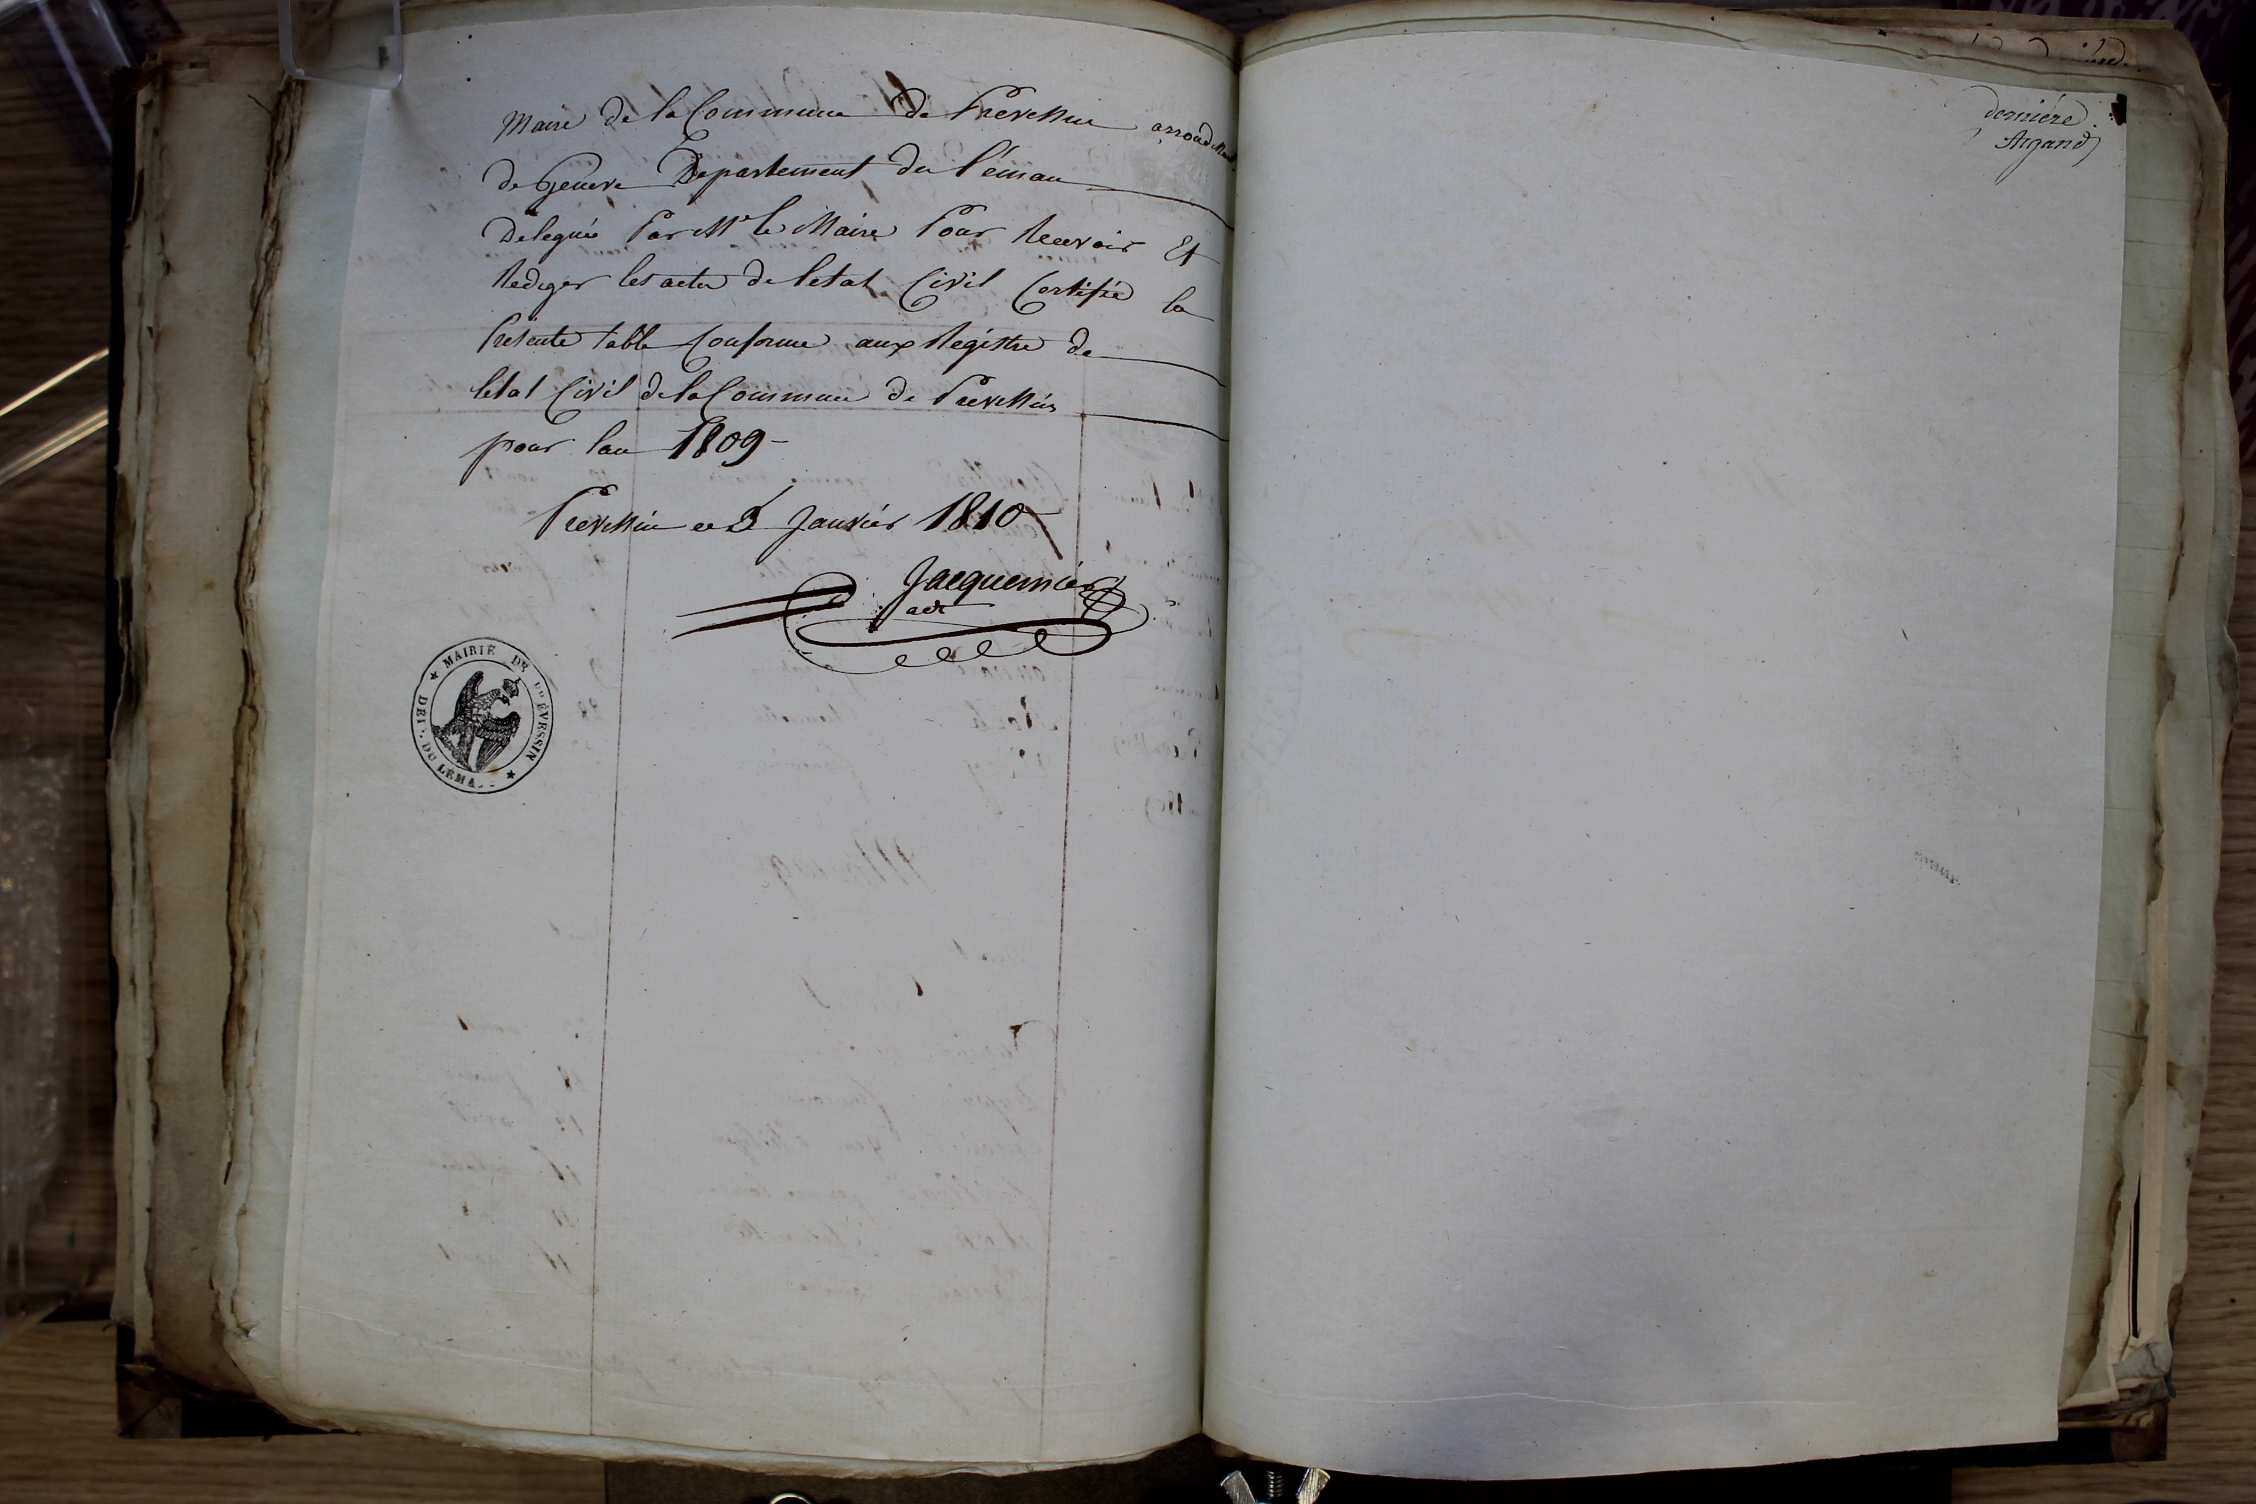 Maire de la Commune de Prevessin arrondment
de Geneve Departement du Léman
Delegué Par Mr le Maire Pour Recevoir Et
Rediger les actes de letat Civil Certifié la
Presente table Conforme aux Régistre de
letat Civil de la Commune de Prevessin
pour lan 1809
Prevessin ce 3 Janvier 1810
Jacquemier
adt
MAIRIE DE PRÉVESSIN
DEP. DU LEMAN
derniére
Argand